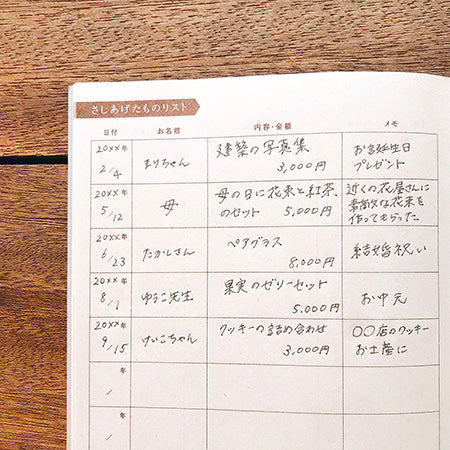 さしあげたものリスト
日付 お名前 内容・金額 メモ
20××年 建築の写真集 お誕生日
2/4 まりちゃん 3,000円 プレゼント
20××年 母の日に花束と紅茶 近くの花屋さんに
5/12 母 のセット 5,000円 素敵な花束を
作ってもらった
20××年 ペアグラス
6/23 たかしさん 8,000円 結婚祝い
20××年 果実のゼリーセット
8/1 ゆうこ先生 5,000円 お中元
20××年 クッキーの詰め合わせ 〇〇店のクッキー
9/15 けいこちゃん 3,000円 お土産に
年
/
年
/